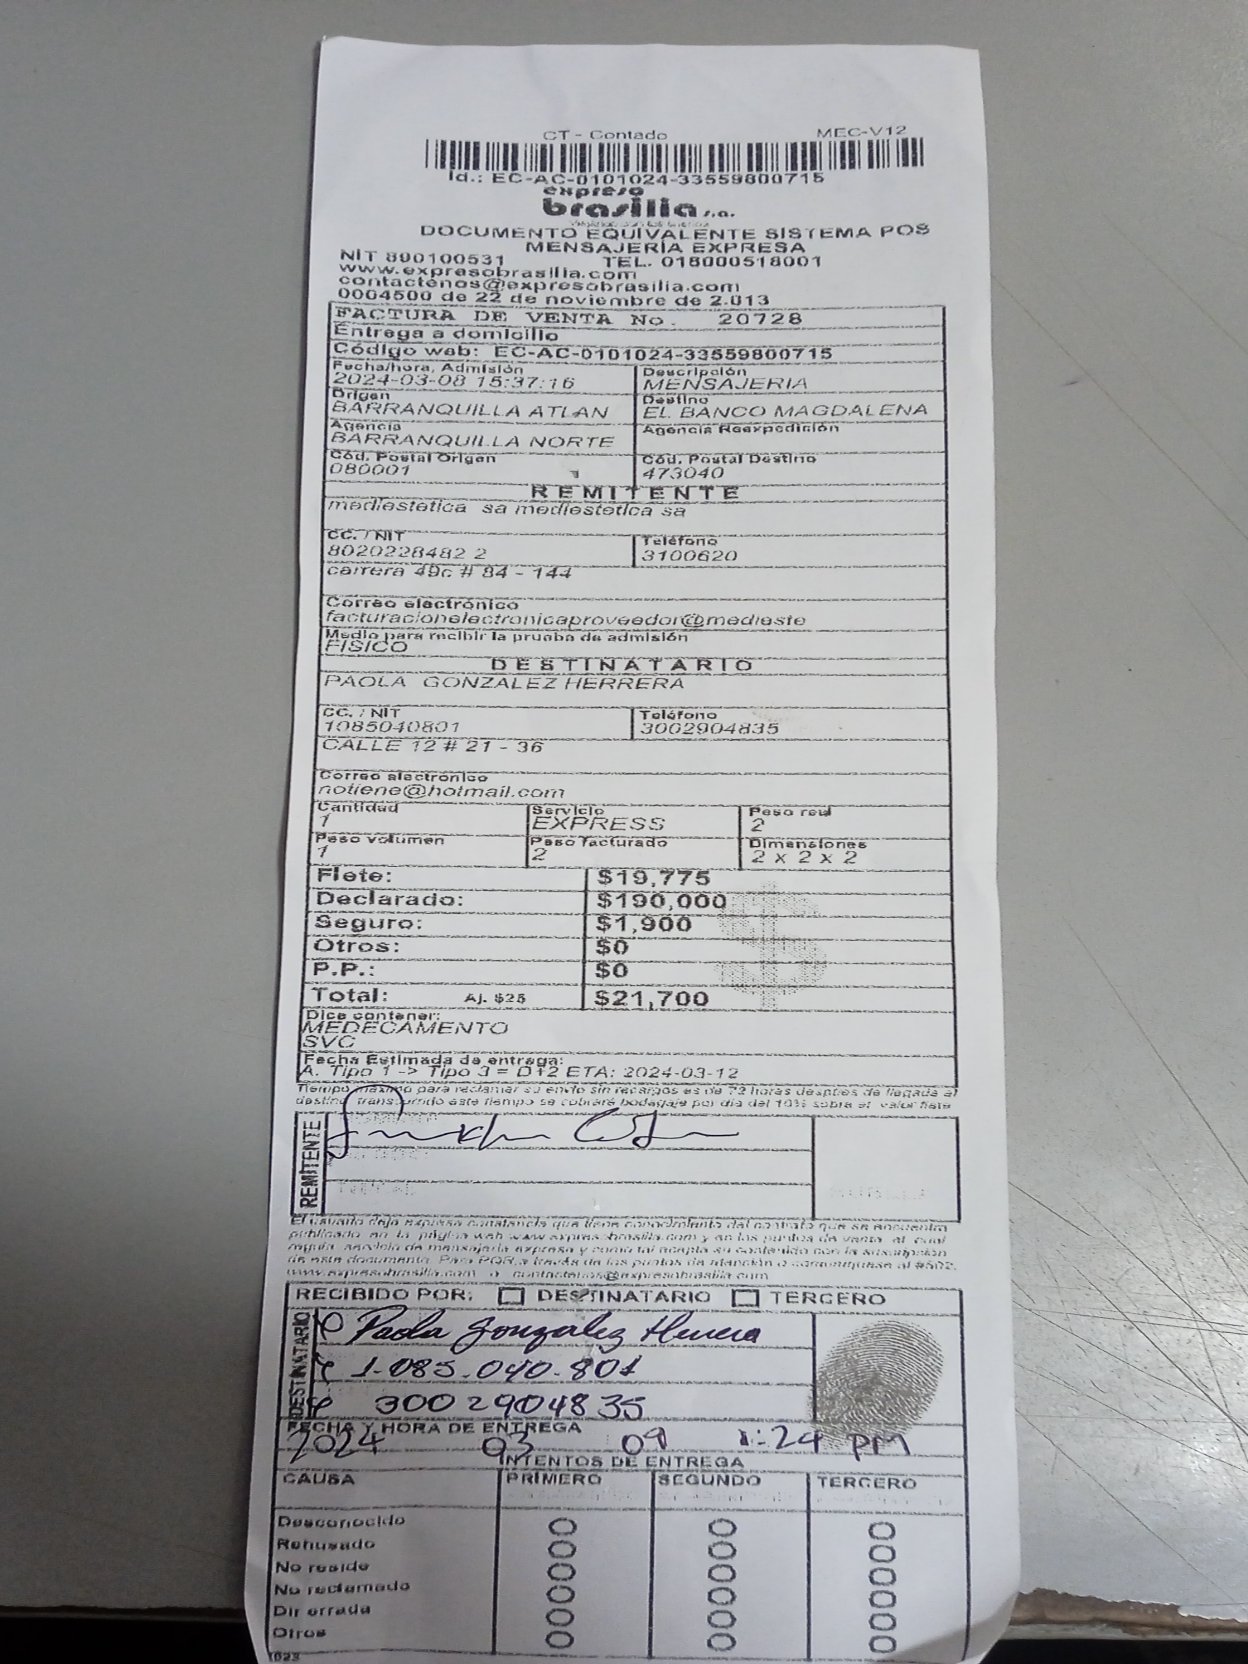 CT - Contado MEC-V12
Id.: EC-AC-0101024-33559800715
expreso
brasilia s.a.
DOCUMENTO EQUIVALENTE SISTEMA POS
MENSAJERÍA EXPRESA
NIT 890100531 TEL. 018000518001
www.expresobrasilia.com
contactenos@expresobrasilia.com
0004500 de 22 de noviembre de 2.013
FACTURA DE VENTA No. 20728
Entrega a domicilio
Código web: EC-AC-0101024-33559800715
Fecha/hora, Admisión Descripción
2024-03-08 15:37:16 MENSAJERIA
Origen Destino
BARRANQUILLA ATLAN EL BANCO MAGDALENA
Agencia Agencia Reexpedición
BARRANQUILLA NORTE
Cód. Postal Origen Cód. Postal Destino
080001 473040
REMITENTE
mediestetica sa mediestetica sa
CC. / NIT Teléfono
8020228482 2 3100620
carrera 49c # 84 - 144
Correo electrónico
facturacionelectronicaproveedor@medieste
Medio para recibir la prueba de admisión
FISICO
DESTINATARIO
PAOLA GONZALEZ HERRERA
CC. / NIT Teléfono
1085040801 3002904835
CALLE 12 # 21 - 36
Correo electrónico
notiene@hotmail.com
Cantidad Servicio Peso real
1 EXPRESS 2
Peso volumen Peso facturado Dimensiones
1 2 2 x 2 x 2
Flete: $19,775
Declarado: $190,000
Seguro: $1,900
Otros: $0
P.P.: $0
Total: Aj. $25 $21,700
Dice contener:
MEDECAMENTO
SVC
Fecha Estimada de entrega:
A. Tipo 1 -> Tipo 3 = D+2 ETA: 2024-03-12
Tiempo máximo para reclamar su envío sin recargos es de 72 horas después de llegada al
destino, transcurrido este tiempo se cobrará bodegaje por día del 10% sobre el valor flete
REMITENTE
El usuario deja expresa constancia que tiene conocimiento del contrato que se encuentra
publicado en la página web www.expresobrasilia.com y en los puntos de venta, el cual
regula servicio de mensajería expresa y como tal acepta su contenido con la suscripción
de este documento. Para PQR a través de los puntos de atención o comuníquese al #502.
www.expresobrasilia.com o contactenos@expresobrasilia.com
RECIBIDO POR: DESTINATARIO TERCERO
DESTINATARIO
Paola Gonzalez Herrera
1.085.040.801
3002904835
FECHA Y HORA DE ENTREGA
2024 03 09 1:24 pm
INTENTOS DE ENTREGA
CAUSA PRIMERO SEGUNDO TERCERO
Desconocido
Rehusado
No reside
No reclamado
Dir errada
Otros